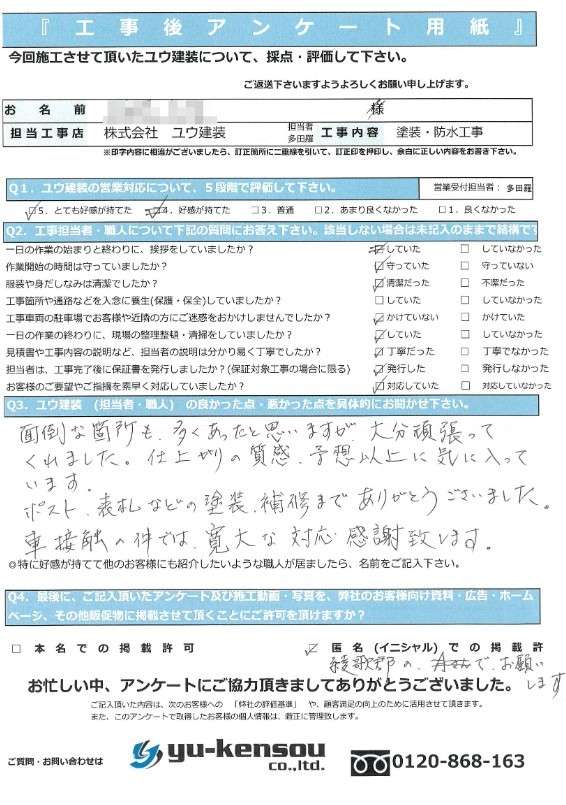 『工事後アンケート用紙』
今回施工させて頂いたユウ建装について、採点・評価して下さい。
ご返送下さいますようよろしくお願い申し上げます。
お名前 様
担当工事店 株式会社 ユウ建装 担当者 多田羅 工事内容 塗装・防水工事
※印字内容に相違がございましたら、訂正箇所に二重線を引いて、訂正印を押印し、余白に正しい内容をお書き下さい。
Q1. ユウ建装の営業対応について、5段階で評価して下さい。 営業受付担当者：多田羅
☑5. とても好感が持てた ☑4. 好感が持てた □3. 普通 □2. あまり良くなかった □1. 良くなかった
Q2. 工事担当者・職人について下記の質問にお答え下さい。該当しない場合は未記入のままで結構です
一日の作業の始まりと終わりに、挨拶をしていましたか？ ☑していた □していなかった
作業開始の時間は守っていましたか？ ☑守っていた □守っていない
服装や身だしなみは清潔でしたか？ ☑清潔だった □不潔だった
工事箇所や通路などを入念に養生(保護・保全)していましたか？ □していた □していなかった
工事車両の駐車場でお客様や近隣の方にご迷惑をおかけしませんでしたか？ ☑かけていない □かけていた
一日の作業の終わりに、現場の整理整頓・清掃をしていましたか？ ☑していた □していなかった
見積書や工事内容の説明など、担当者の説明は分かり易く丁寧でしたか？ ☑丁寧だった □丁寧でなかった
担当者は、工事完了後に保証書を発行しましたか？(保証対象工事の場合に限る) ☑発行した □発行しなかった
お客様のご要望やご指摘を素早く対応していましたか？ ☑対応していた □対応していなかった
Q3. ユウ建装 (担当者・職人) の良かった点・悪かった点を具体的にお聞かせ下さい。
面倒な箇所も、多くあったと思いますが、大分頑張って
くれました。仕上がりの質感、予想以上に気に入って
います。
ポスト、表札などの塗装、補修までありがとうございました。
車接触の件では、寛大な対応感謝致します。
◎特に好感が持てて他のお客様にも紹介したいような職人が居ましたら、名前をご記入下さい。
Q4. 最後に、ご記入頂いたアンケート及び施工動画・写真を、弊社のお客様向け資料・広告・ホーム
ページ、その他販促物に掲載させて頂くことにご許可を頂けますか？
□本名での掲載許可 ☑匿名(イニシャル)での掲載許
綾歌郡の、 で、お願い
します
お忙しい中、アンケートにご協力頂きましてありがとうございました。
ご記入頂いた内容は、次のお客様への 「弊社の評価基準」 や、顧客満足の向上のために活用させて頂きます。
また、このアンケートで取得したお客様の個人情報は、厳正に管理致します。
ご質問・お問い合わせは yu-kensou co.,ltd. 0120-868-163